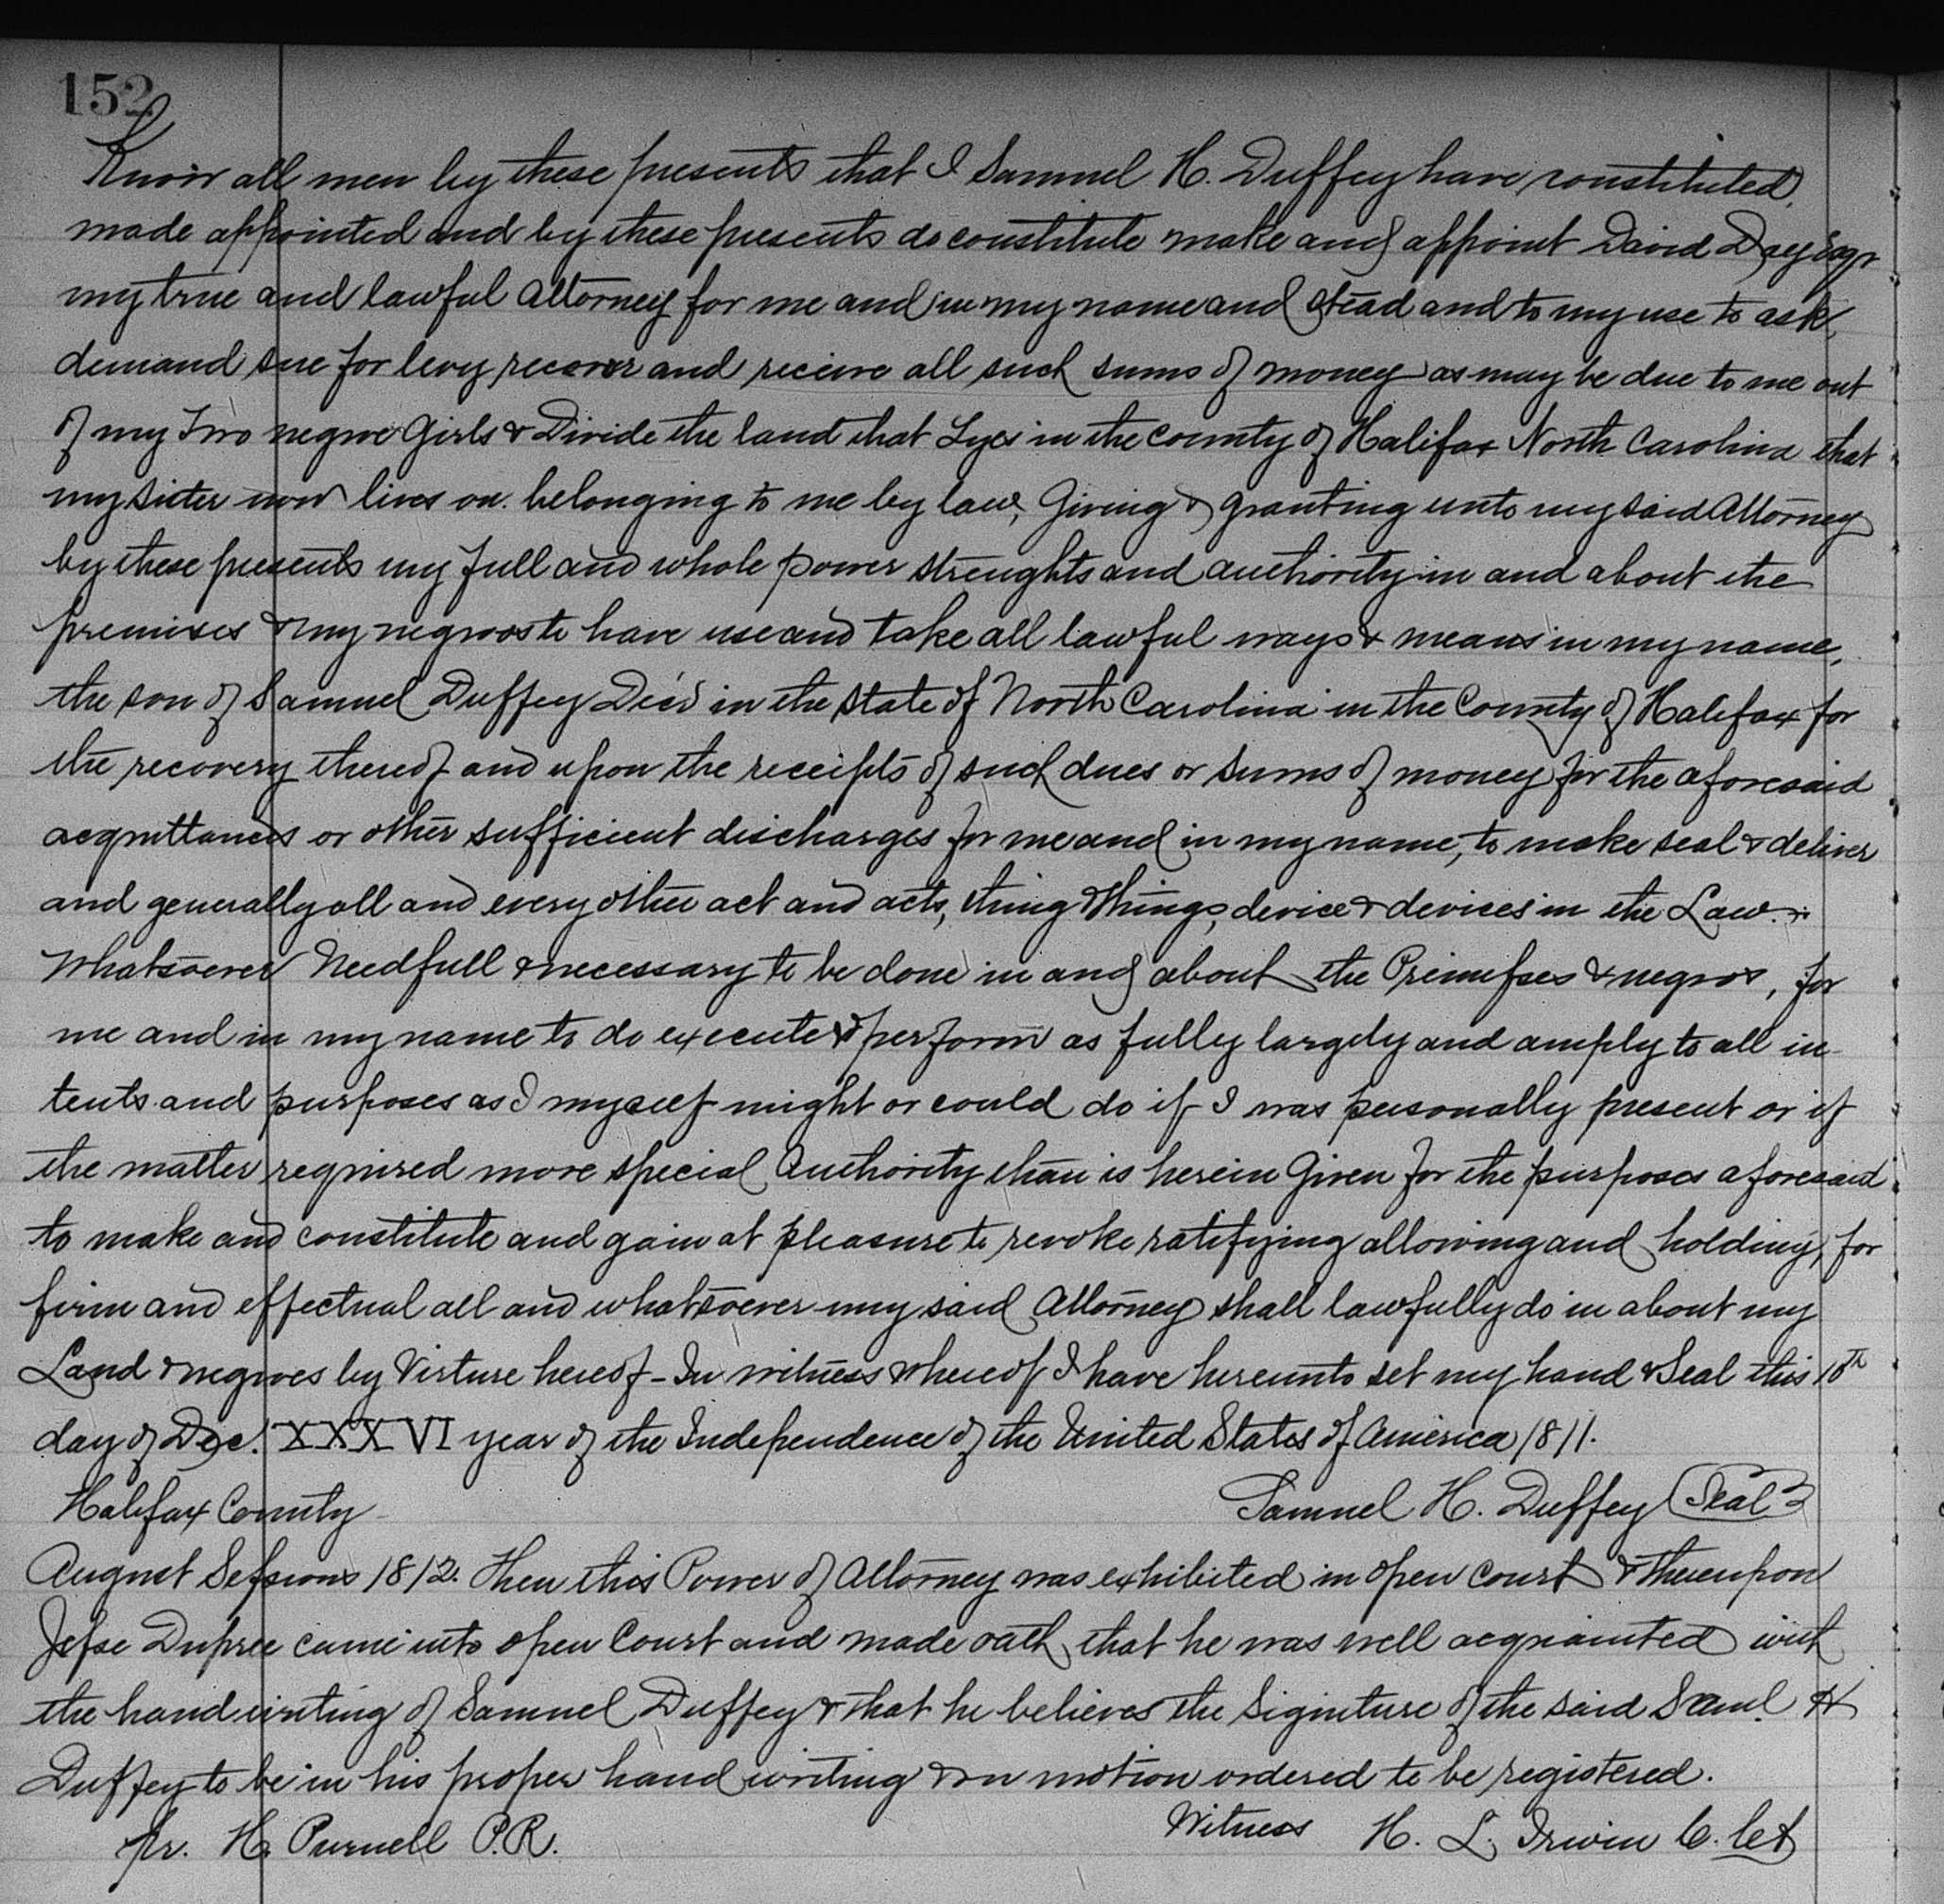 152
Know all men by these presents that I Samuel H. Duffey have constituted,
made appointed and by these presents do constitute make and appoint David Dey Esqr
my true and lawful Attorney for me and in my name and stead and to my use to ask,
demand sue for levy recover and receive all such sums of money as may be due to me out
of my Two negroe Girls & Divide the land that Lyes in the county of Halifax North Carolina that
my sister now lives on. belonging to me by law, Giving & granting unto my said Attorney
by these presents my full and whole power strenghts and authority in and about the
premises & my negroes to have use and take all lawful ways & means in my name,
the son of Samuel Duffey Dec'd in the State of North Carolina in the County of Halifax for
the recovery thereof and upon the receipts of such dues or sums of money for the aforesaid
acquittances or other sufficient discharges for me and in my name, to make seal & deliver
and generally all and every other act and acts, thing & things, device & devices in the Law
Whatsoever Needfull & necessary to be done in and about the Primisses & negros, for
me and in my name to do execute & perform as fully largely and amply to all in-
tents and purposes as I myself might or could do if I was personally present or if
the matter required more special Authority than is herein Given for the purposes aforesaid
to make and constitute and gain at pleasure to revoke ratifying allowing and holding, for
firm and effectual all and whatsoever my said Attorney shall lawfully do in about my
Land & negroes by Virture hereof - In witness whereof I have hereunto set my hand & Seal this 18th
day of Dec. XXXVI year of the Independence of the United States of America 1811.
Halifax County Samuel H. Duffey (Seal)
August Sessions 1812. Then this Power of Attorney was exhibited in open court & thereupon
Jesse Dupree came into open Court and made oath that he was well acquainted with
the handwriting of Samuel Duffey & that he believes the Signiture of the said Saml. H
Duffey to be in his proper hand writing & on motion ordered to be registered.
pr. H. Purnell P.R. Witness H. L. Irwin C. Ct